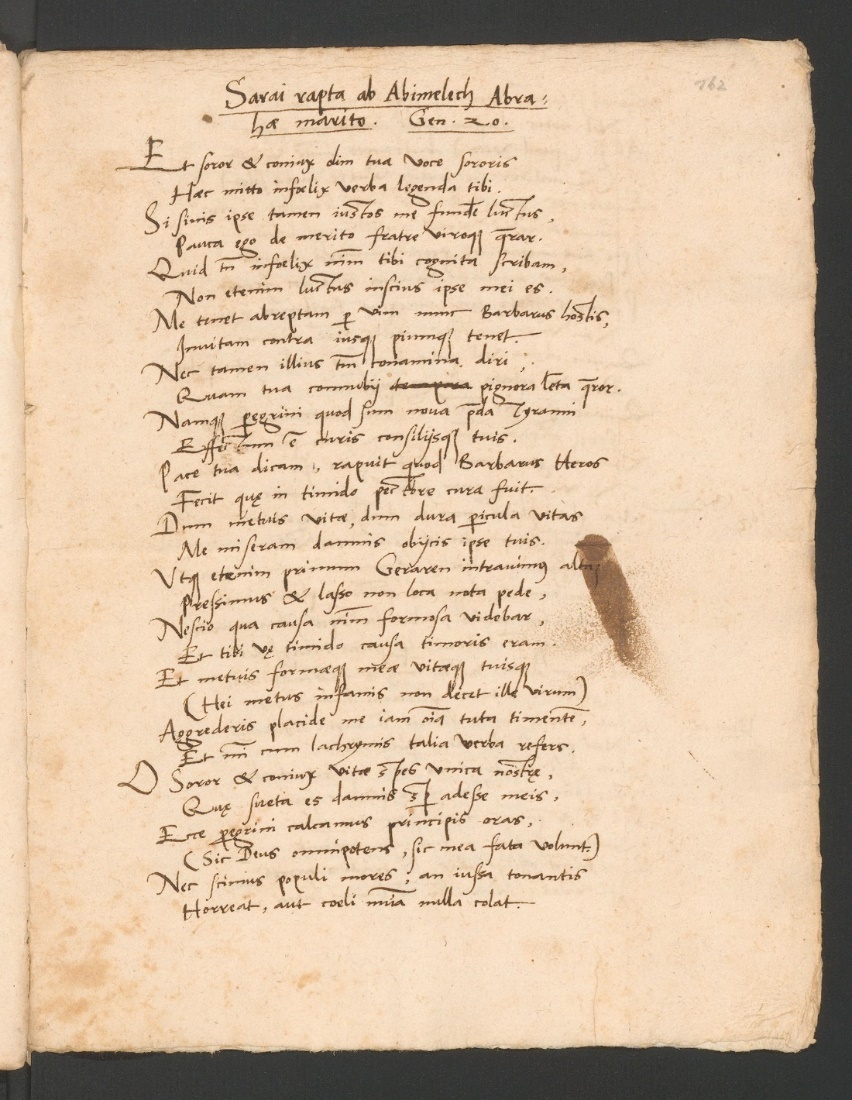 762
Sarai rapta ab Abimelech Abra:
hæ marito. Gen. 20.
Et soror & coniux dim tua voce sororis
Hæc mitto infœlix verba legenda tibi.
Si sinis ipse tamen iustos me fundẽ luctus,
Pauca ego de merito fratre viroqꝫ q̃rar.
Quid tñ infœlix nim̃ tibi cognita scribam,
Non etenim luctus inscius ipse mei es.
Me tenet abreptam ꝑ vim nunc Barbarus hostis,
Inuitam contra iusqꝫ piumqꝫ tenet.
Nec tamen illius tm̃ conamina diri,
Quam tua connubij pignora lęta q̃ror.
Namqꝫ ꝑegrini quod sum noua p̃da Tyranni
Effectum ẽ curis consilijsqꝫ tuis.
Pace tua dicam, rapuit quod Barbarus Heros
Fecit quę in timido pectore cura fuit.
Dum metuis vitæ, dum dura ꝑicula vitas
Me miseram damnis obijcis ipse tuis.
Vtqꝫ etenim primum Geraren intrauimꝰ
Pressimus & lasso non loca nota pede,
Nescio qua causa nim̃ formosa videbar,
Et tibi vę timido causa timoris eram.
Et metuis formæqꝫ meæ vitæqꝫ tuisqꝫ
(Hei metus infamis non decet ille virum)
Aggrederis placide me iam oĩa tuta timentẽ,
Et mĩ cum lachrymis talia verba refers.
O Soror & coniux vitæ spes vnica nostrę,
Quę sueta es damnis sꝑ adesse meis,
Ecce ꝑegrini calcamus principis oras,
(Sic Deus omnipotens, sic mea fata volunt)
Nec scimus populi mores, an iussa tonantis
Horreat, aut coeli nuĩa nulla colat.